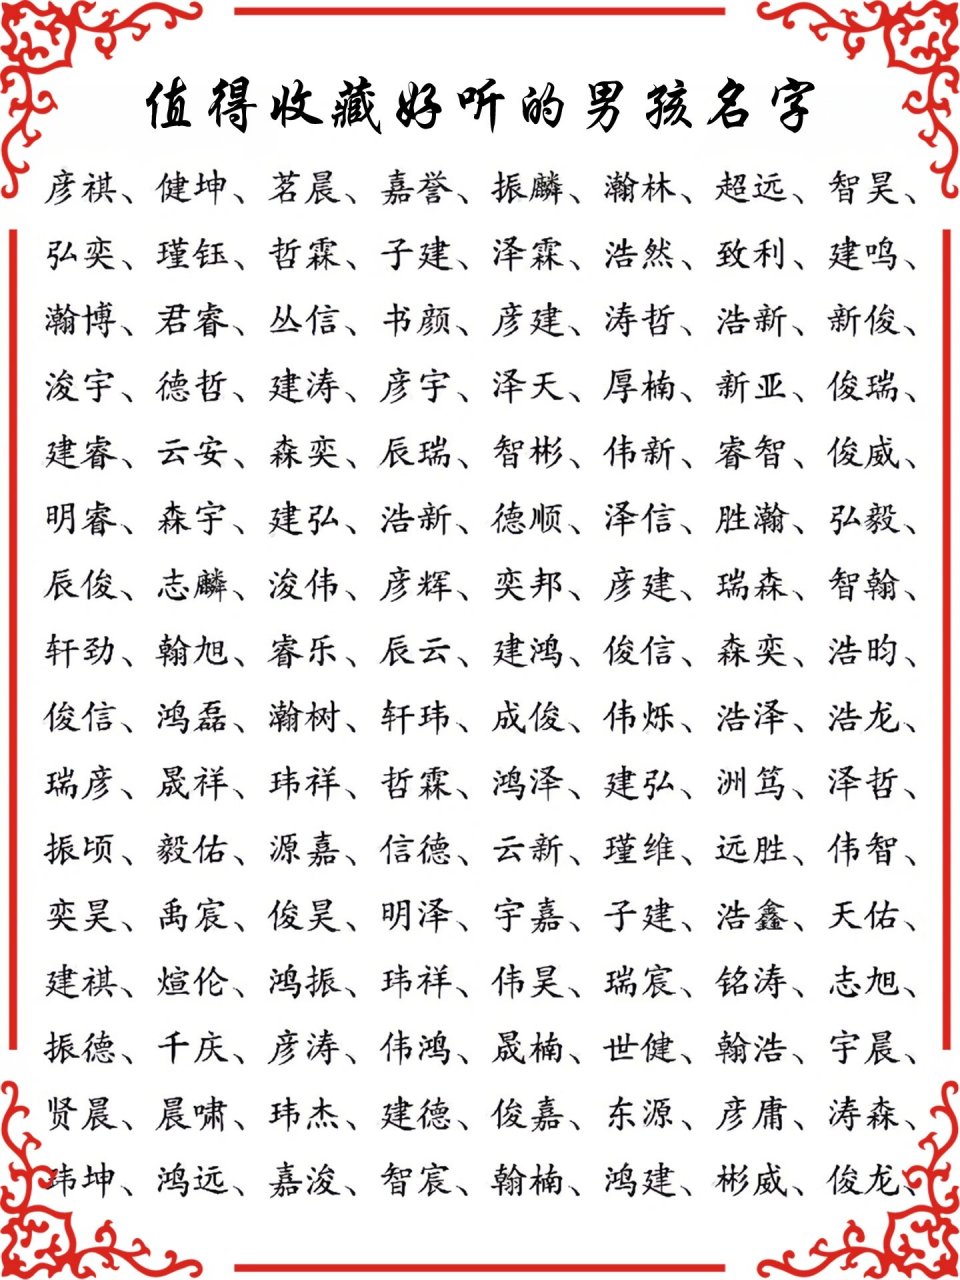 值得收藏好听的男孩名字
彦祺、健坤、茗晨、嘉誉、振麟、瀚林、超远、智昊、
弘奕、瑾钰、哲霖、子建、泽霖、浩然、致利、建鸣、
瀚博、君睿、丛信、书颜、彦建、涛哲、浩新、新俊、
浚宇、德哲、建涛、彦宇、泽天、厚楠、新亚、俊瑞、
建睿、云安、森奕、辰瑞、智彬、伟新、睿智、俊威、
明睿、森宇、建弘、浩新、德顺、泽信、胜瀚、弘毅、
辰俊、志麟、浚伟、彦辉、奕邦、彦建、瑞森、智翰、
轩劲、翰旭、睿乐、辰云、建鸿、俊信、森奕、浩昀、
俊信、鸿磊、瀚树、轩玮、成俊、伟烁、浩泽、浩龙、
瑞彦、晟祥、玮祥、哲霖、鸿泽、建弘、洲笃、泽哲、
振顷、毅佑、源嘉、信德、云新、瑾维、远胜、伟智、
奕昊、禹宸、俊昊、明泽、宇嘉、子建、浩鑫、天佑、
建祺、煊伦、鸿振、玮祥、伟昊、瑞宸、铭涛、志旭、
振德、千庆、彦涛、伟鸿、晟楠、世健、翰浩、宇晨、
贤晨、晨啸、玮杰、建德、俊嘉、东源、彦庸、涛森、
玮坤、鸿远、嘉浚、智宸、翰楠、鸿建、彬威、俊龙、